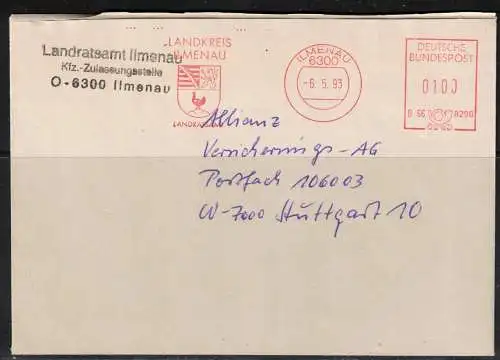 Landratsamt Ilmenau
Kfz.-Zulassungsstelle
O-6300 Ilmenau
LANDKREIS
ILMENAU
ILMENAU
6300
-6.5.93
DEUTSCHE
BUNDESPOST
0100
Allianz
Versicherungs-AG
Postfach 106003
W-7000 Stuttgart 10